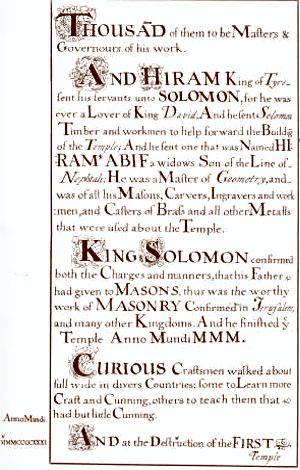 THOUSAD̄ of them to be Maſters &
Governours of his work.
AND HIRAM King of Tyre
ſent his ſervants unto SOLOMON, for he was
ever a Lover of King David; And he ſent Solomon
Timber and workmen to help forward the Buildg
of the Temple; And he ſent one that was Named HI-
RAM' ABIF a widows Son of the Line of
Nephtali; He was a Maſter of Geometry, and
was of all his Maſons, Carvers, Ingravers and work
:men, and Caſters of Braſs and all other Metalls
that were uſed about the Temple.
KING SOLOMON confirmed
both the Charges and manners, that his Father
had given to MASONS, thus was the worthy
work of MASONRY Confirmed in Jeruſalem,
and many other Kingdoms. And he finiſhed yͤ
Temple Anno Mundi MMM.
CURIOUS Craftsmen walked about
full wide in divers Countries; ſome to Learn more
Craft and Cunning, others to teach them that
had but little Cunning.
Anno Mundi
MMMCCCCXXXI
AND at the Deſtruction of the FIRST
Temple